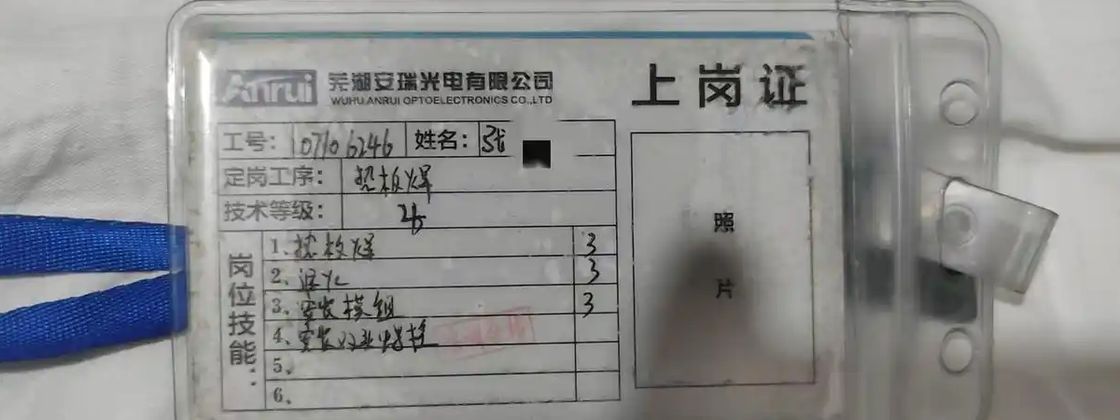 Anrui 芜湖安瑞光电有限公司
WUHU ANRUI OPTOELECTRONICS CO.,LTD
上岗证
工号: 107106246 姓名: 张
定岗工序: 热板焊
技术等级:
岗位技能:
1、热板焊 3
2、退火 3
3、安装模组 3
4、安装双头螺柱
5、
6、
照片